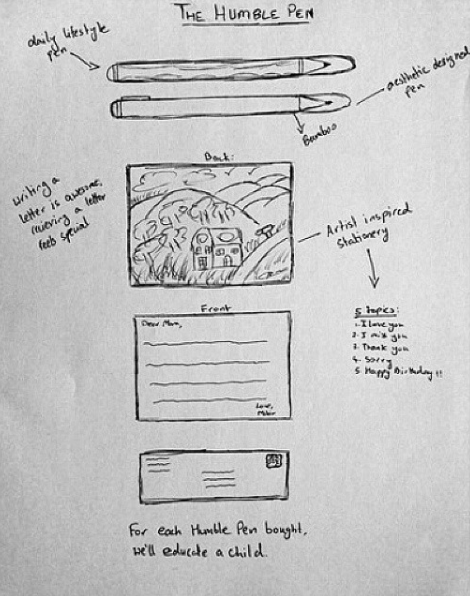 THE HUMBLE PEN
daily lifestyle
pen
aesthetic designed
pen
Bamboo
Back:
Writing a
letter is awesome,
recieving a letter
feels special
Artist inspired
stationery
5 Topics:
1. I love you
2. I miss you
3. Thank you
4. Sorry
5. Happy Birthday!!
Front
Dear Mom,
Love,
For each Humble Pen bought,
we'll educate a child.